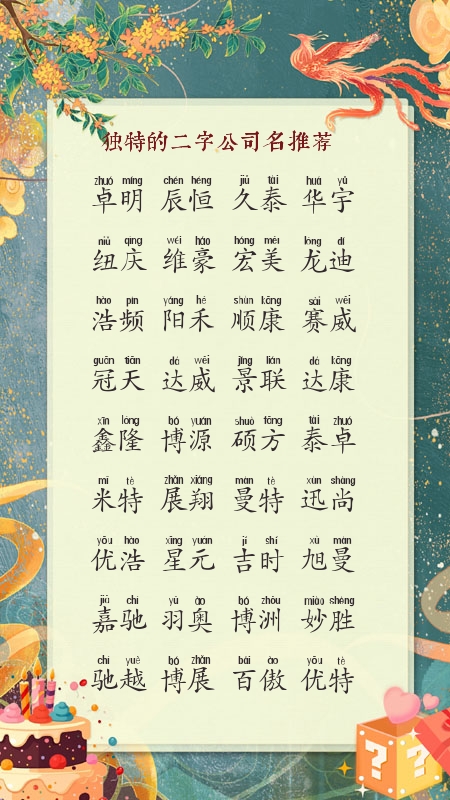 独特的二字公司名推荐
zhuó míng chén héng jiǔ tài huà yǔ
卓明 辰恒 久泰 华宇
niǔ qìng wéi háo hóng měi lóng dí
纽庆 维豪 宏美 龙迪
hào pín yáng hé shùn kāng sài wēi
浩频 阳禾 顺康 赛威
guān tiān dá wēi jǐng lián dá kāng
冠天 达威 景联 达康
xīn lóng bó yuán shuò fāng tài zhuó
鑫隆 博源 硕方 泰卓
mǐ tè zhǎn xiáng màn tè xùn shàng
米特 展翔 曼特 迅尚
yōu hào xīng yuán jí shí xù màn
优浩 星元 吉时 旭曼
jiā chí yǔ ào bó zhōu miào shèng
嘉驰 羽奥 博洲 妙胜
chí yuè bó zhǎn bǎi ào yōu tè
驰越 博展 百傲 优特